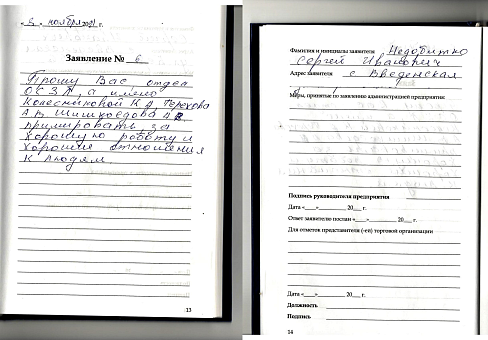 « 3 » ноября 2021 г.
Заявление № 6
Прошу Вас, отдел
ОСЗП, а имено
Колесниковой К А, Терехова
А.А, Шишкоедова А.В.
примировать за
хорошую работу и
хорошие отношения
к людям
13
Фамилия и инициалы заявителя Недобитко
Сергей Иванович
Адрес заявителя с Введенская
Меры, принятые по заявлению администрацией предприятия:
Подпись руководителя предприятия
Дата «___»__________ 20___ г.
Ответ заявителю послан «___»__________ 20___ г.
Для отметок представителя (-ей) торговой организации
Дата «___»__________ 20___ г.
Должность
Подпись
14